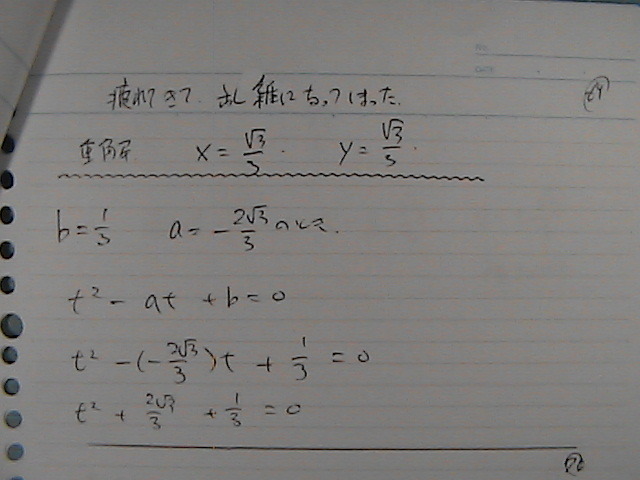 No.
DATE
疲れてきて、乱雑になってしまった。
重解 x = √3/3. y = √3/3.
b = 1/3 a = -2√3/3 のとき.
t² - at + b = 0
t² - (-2√3/3)t + 1/3 = 0
t² + 2√3/3 + 1/3 = 0